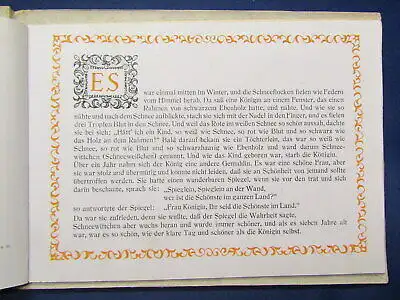 ES
war einmal mitten im Winter, und die Schneeflocken fielen wie Federn
vom Himmel herab. Da saß eine Königin an einem Fenster, das einen
Rahmen von schwarzem Ebenholz hatte, und nähte. Und wie sie so
nähte und nach dem Schnee aufblickte, stach sie sich mit der Nadel in den Finger, und es fielen
drei Tropfen Blut in den Schnee. Und weil das Rote im weißen Schnee so schön aussah, dachte
sie bei sich: „Hätt' ich ein Kind, so weiß wie Schnee, so rot wie Blut und so schwarz wie
das Holz an dem Rahmen!" Bald darauf bekam sie ein Töchterlein, das war so weiß wie
Schnee, so rot wie Blut und so schwarzhaarig wie Ebenholz und ward darum Schnee-
wittchen (Schneeweißchen) genannt. Und wie das Kind geboren war, starb die Königin.
Über ein Jahr nahm sich der König eine andere Gemahlin. Es war eine schöne Frau, aber
sie war stolz und übermütig und konnte nicht leiden, daß sie an Schönheit von jemand sollte
übertroffen werden. Sie hatte einen wunderbaren Spiegel, wenn sie vor den trat und sich
darin beschaute, sprach sie: „Spieglein, Spieglein an der Wand,
wer ist die Schönste im ganzen Land?"
so antwortete der Spiegel: „Frau Königin, Ihr seid die Schönste im Land."
Da war sie zufrieden, denn sie wußte, daß der Spiegel die Wahrheit sagte.
Schneewittchen aber wuchs heran und wurde immer schöner, und als es sieben Jahre alt
war, war es so schön, wie der klare Tag und schöner als die Königin selbst.